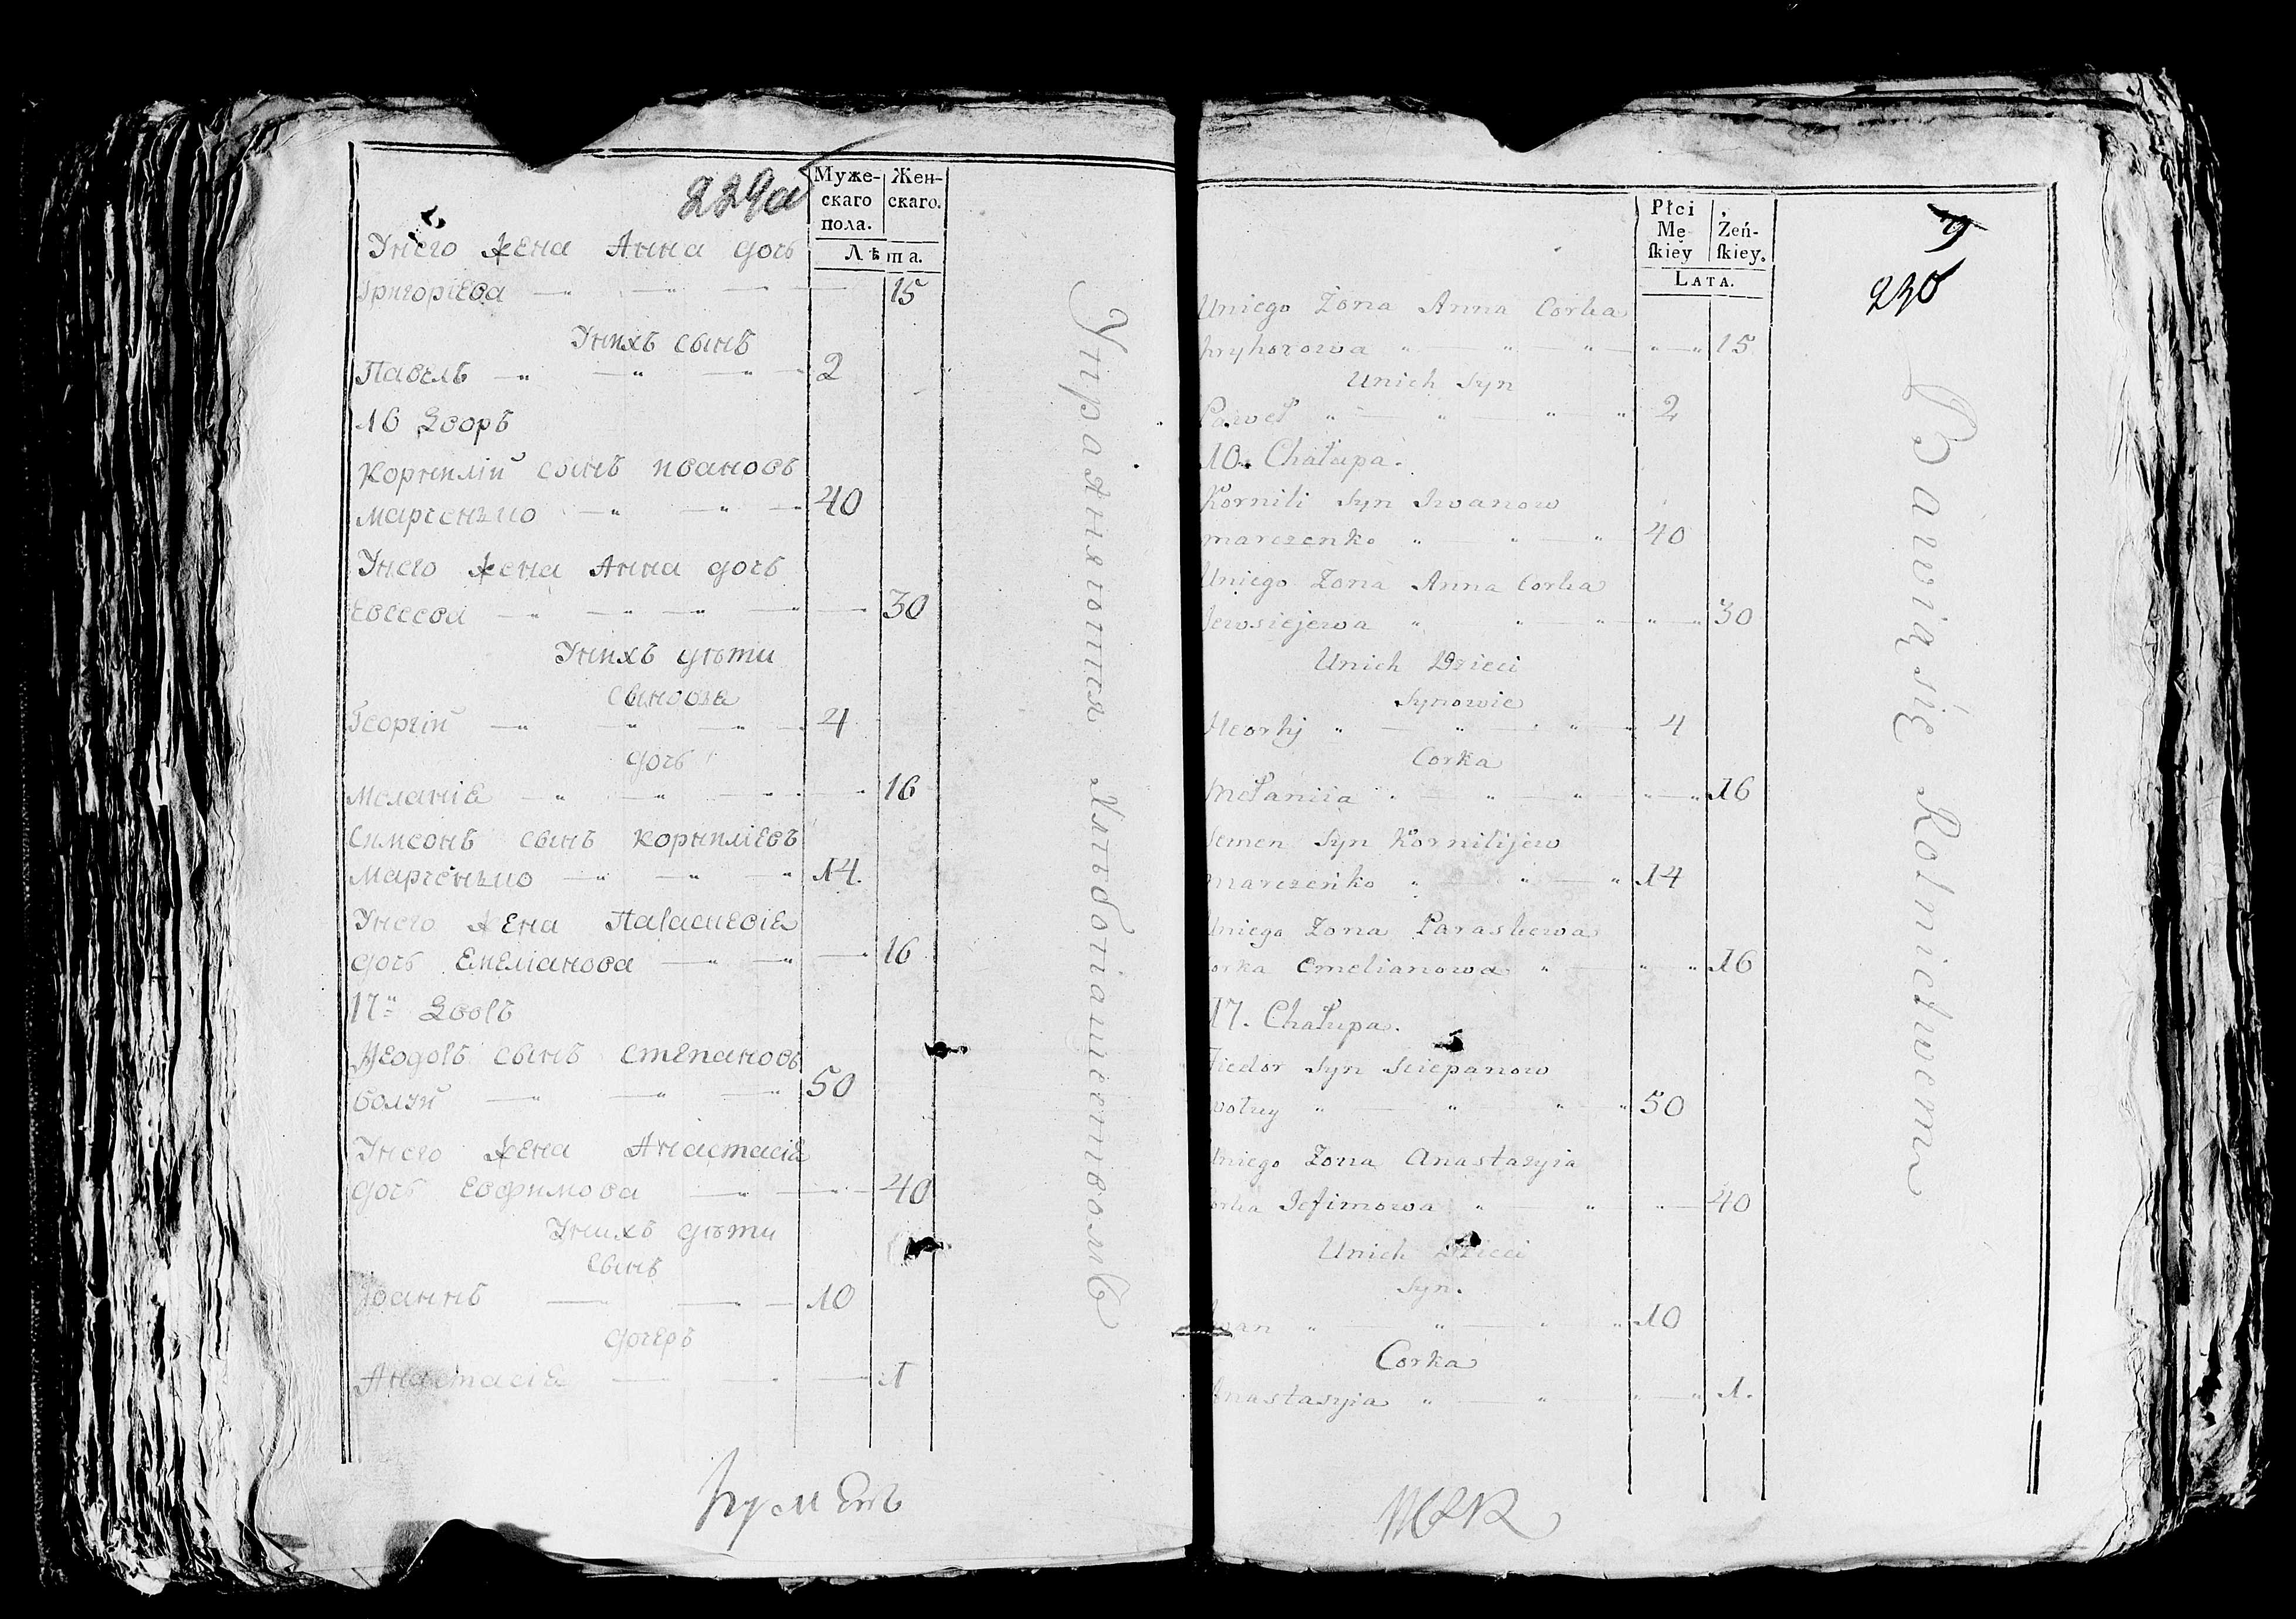 229а
Муже-
скаго
пола.
Жен-
скаго.
Лѣта.
Унего жена Анна дочь
григоріева 15
Унихъ сынъ
Павелъ 2
16 Дворъ
Корнилій сынъ ивановъ
марченко 40
Унего жена Анна дочь
Евсеева 30
Унихъ дѣти
Сынове
Георгій 4
дочь
меланіа 16
Симеонъ сынъ корниліевъ
марченко 14.
Унего жена Параскевіа
дочь Емеліанова 16
17 Дворъ
Ѳеодоръ сынъ степановъ
волуй 50
Унего жена Анастасіа
дочь Евфимова 40
Унихъ дѣти
Сынъ
Іоаннъ 10
дочеръ
Анастасіа 1
Упражняются Хлѣбопашествомъ
Płci
Mę
ſkiey
Żeń-
ſkiey.
LATA.
230
Uniego Zona Anna Corka
hryhorowa 15
Unich Syn
Paweł 2
16. Chałupa.
Kornili Syn Iwanow
marczenko 40
Uniego Zona Anna Corka
Jewsiejewa 30
Unich Dzieci
Synowie
Heorhij 4
Corka
mełaniia 16
Semen Syn Kornilijew
marczenko 14
Uniego Zona Paraskewa
Corka Emelianowa 16
17. Chałupa.
Fiedor Syn Sciepanow
wołuy 50
Uniego Zona Anastazyia
Corka Jefimowa 40
Unich Dzieci
Syn.
Iwan 10
Corka
Anastazyia 1.
Bawią się Rolnictwem